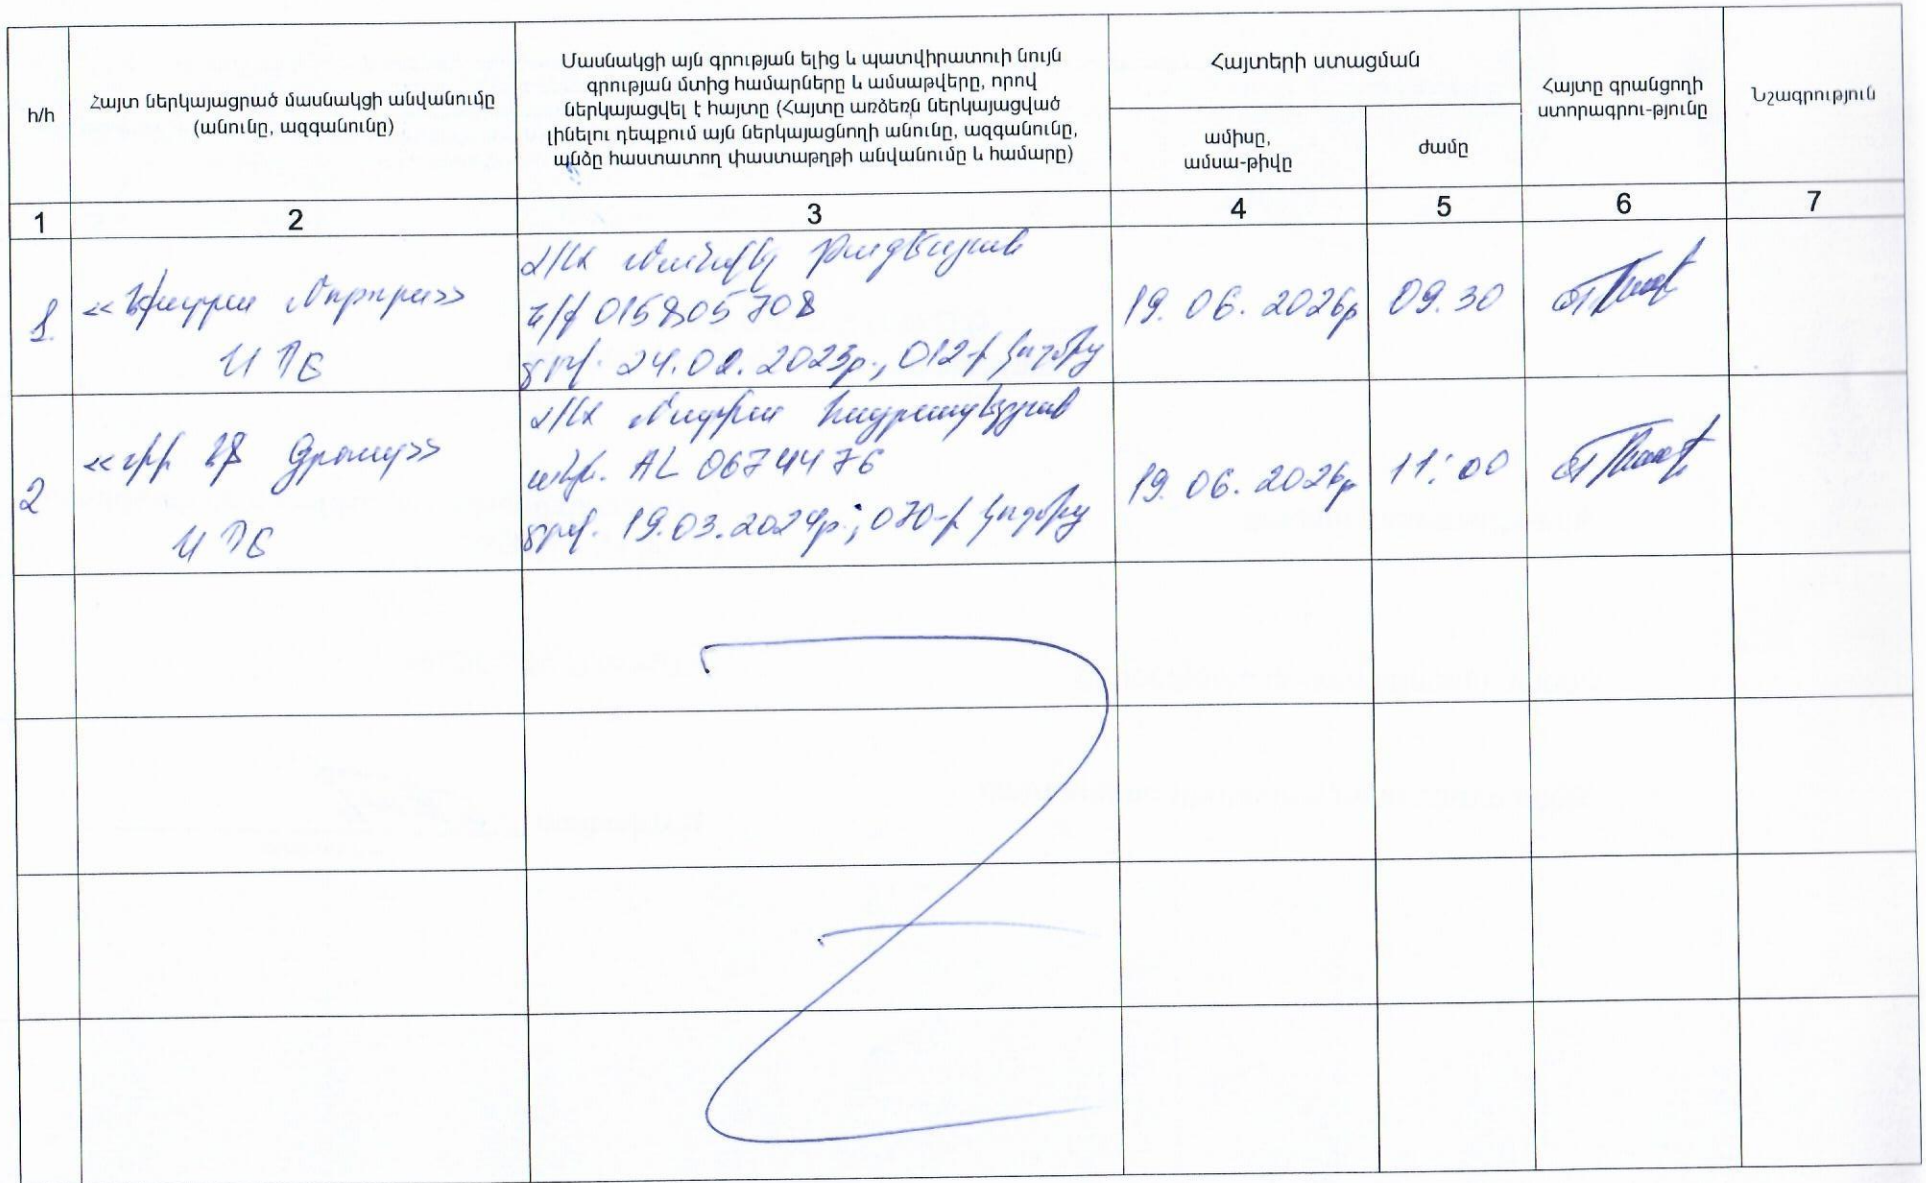 հ/հ
Հայտ ներկայացրած մասնակցի անվանումը
(անունը, ազգանունը)
Մասնակցի այն գրության ելից և պատվիրատուի նույն
գրության մտից համարները և ամսաթվերը, որով
ներկայացվել է հայտը (Հայտը առձեռն ներկայացված
լինելու դեպքում այն ներկայացնողի անունը, ազգանունը,
անձը հաստատող փաստաթղթի անվանումը և համարը)
Հայտերի ստացման
ամիսը,
ամսա-թիվը
ժամը
Հայտը գրանցողի
ստորագրու-թյունը
Նշագրություն
1 2 3 4 5 6 7
1.
ՍՊԸ
015805708
տրվ. 24.02.2023թ., 012-ի կողմից
19.06.2026թ 09.30
2
ՍՊԸ
AL 0674476
տրվ. 19.03.2024թ.; 070-ի կողմից
19.06.2026թ 11:00